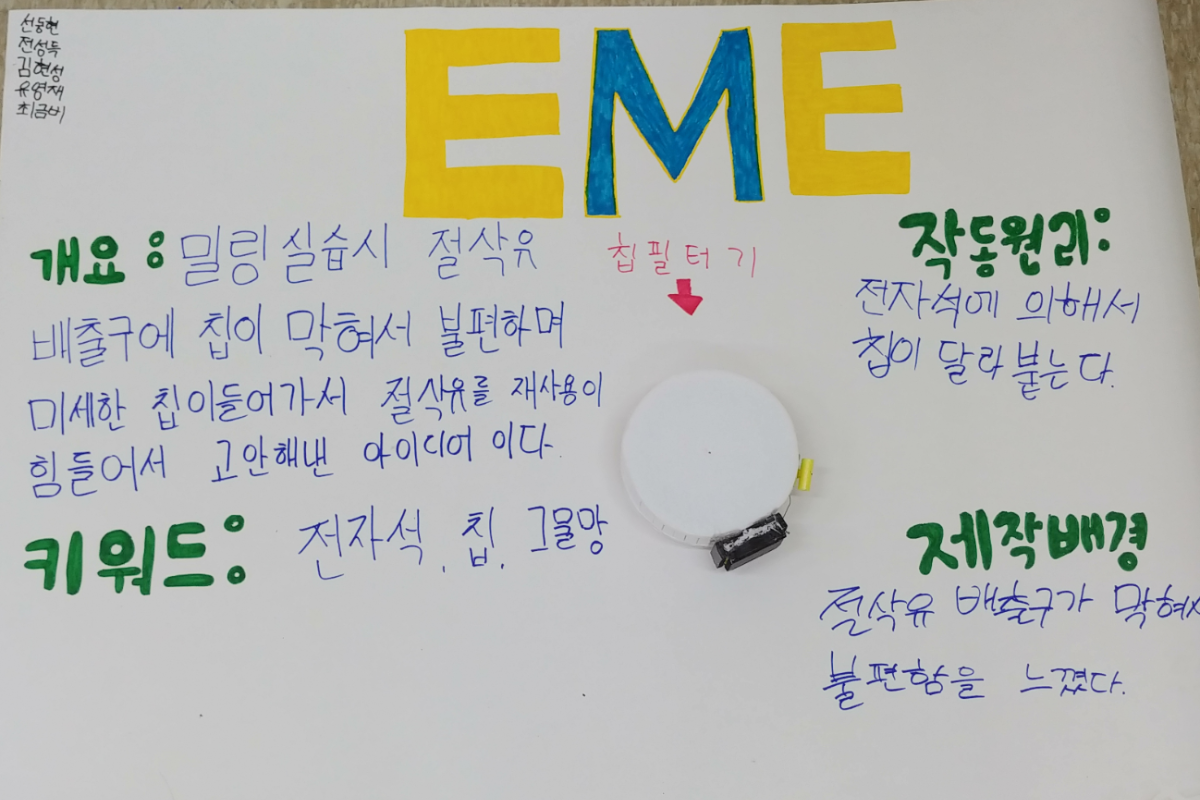 선동현
전성득
김현성
유영재
최금비
EME
개요: 밀링실습시 절삭유
배출구에 칩이 막혀서 불편하며
미세한 칩이들어가서 절삭유를 재사용이
힘들어서 고안해낸 아이디어 이다
키워드: 전자석, 칩, 그물망
칩필터기
작동원리:
전자석에 의해서
칩이 달라붙는다.
제작배경
절삭유 배출구가 막혀서
불편함을 느꼈다.